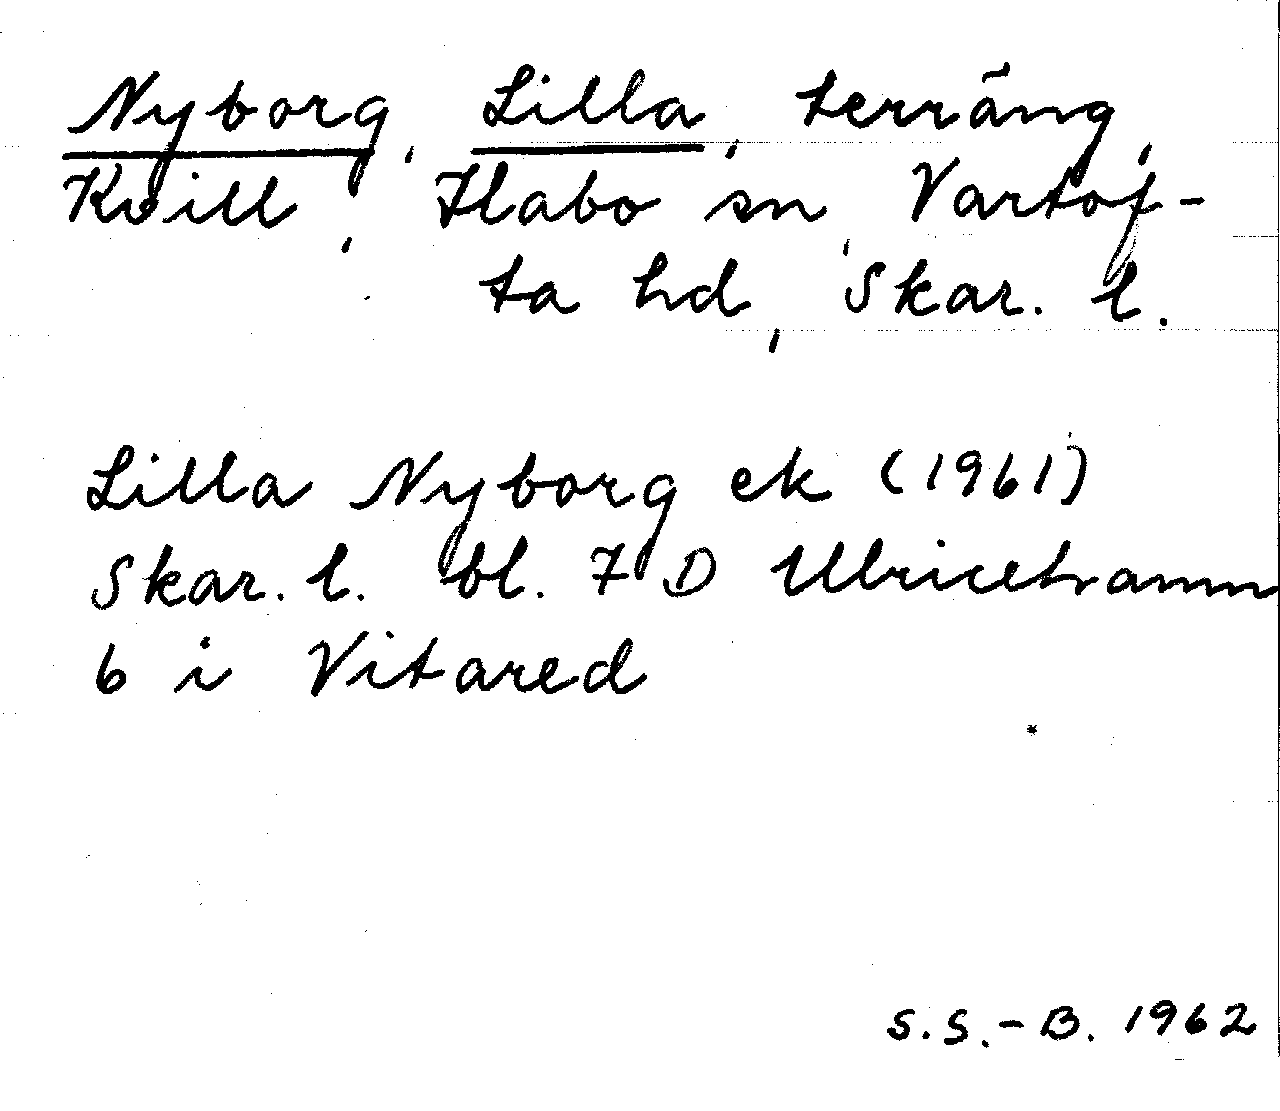 Nyborg, Lilla, terräng,
Kvill, Habo sn, Vartof-
ta hd, Skar. l.
Lilla Nyborg ek (1961)
Skar. l. bl. 7 D Ulricehamn
6 i Vitared
S.S.-B. 1962